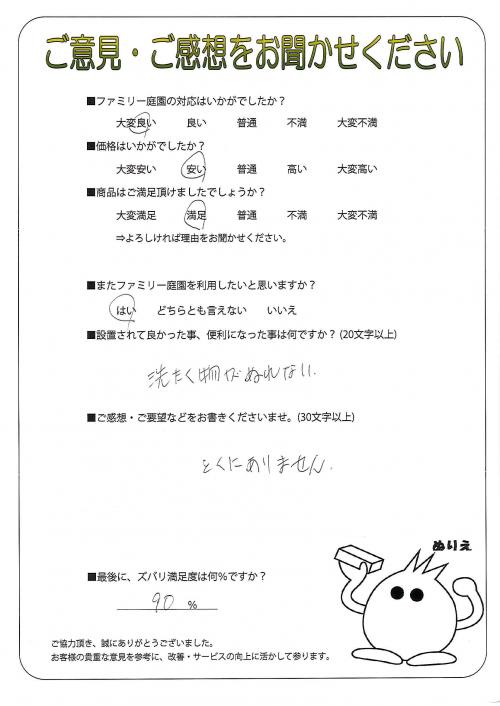 ご意見・ご感想をお聞かせください
■ファミリー庭園の対応はいかがでしたか?
大変良い 良い 普通 不満 大変不満
■価格はいかがでしたか?
大変安い 安い 普通 高い 大変高い
■商品はご満足頂けましたでしょうか?
大変満足 満足 普通 不満 大変不満
⇒よろしければ理由をお聞かせください。
■またファミリー庭園を利用したいと思いますか?
はい どちらとも言えない いいえ
■設置されて良かった事、便利になった事は何ですか?(20文字以上)
洗たく物がぬれない.
■ご感想・ご要望などをお書きくださいませ。(30文字以上)
とくにありません.
ぬりえ
■最後に、ズバリ満足度は何%ですか?
90 %
ご協力頂き、誠にありがとうございました。
お客様の貴重な意見を参考に、改善・サービスの向上に活かして参ります。